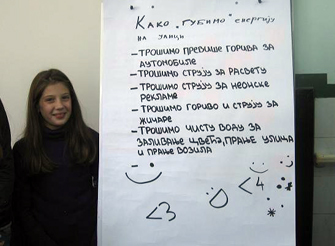 Како „губимо" енергију
на улици
– Трошимо превише горива за
аутомобиле
– Трошимо струју за расвету
– Трошимо струју за неонске
рекламе
– Трошимо гориво и струју за
жичаре
– Трошимо чисту воду за
заливање цвећа, прање улица
и прање возила
<3
:D
<4